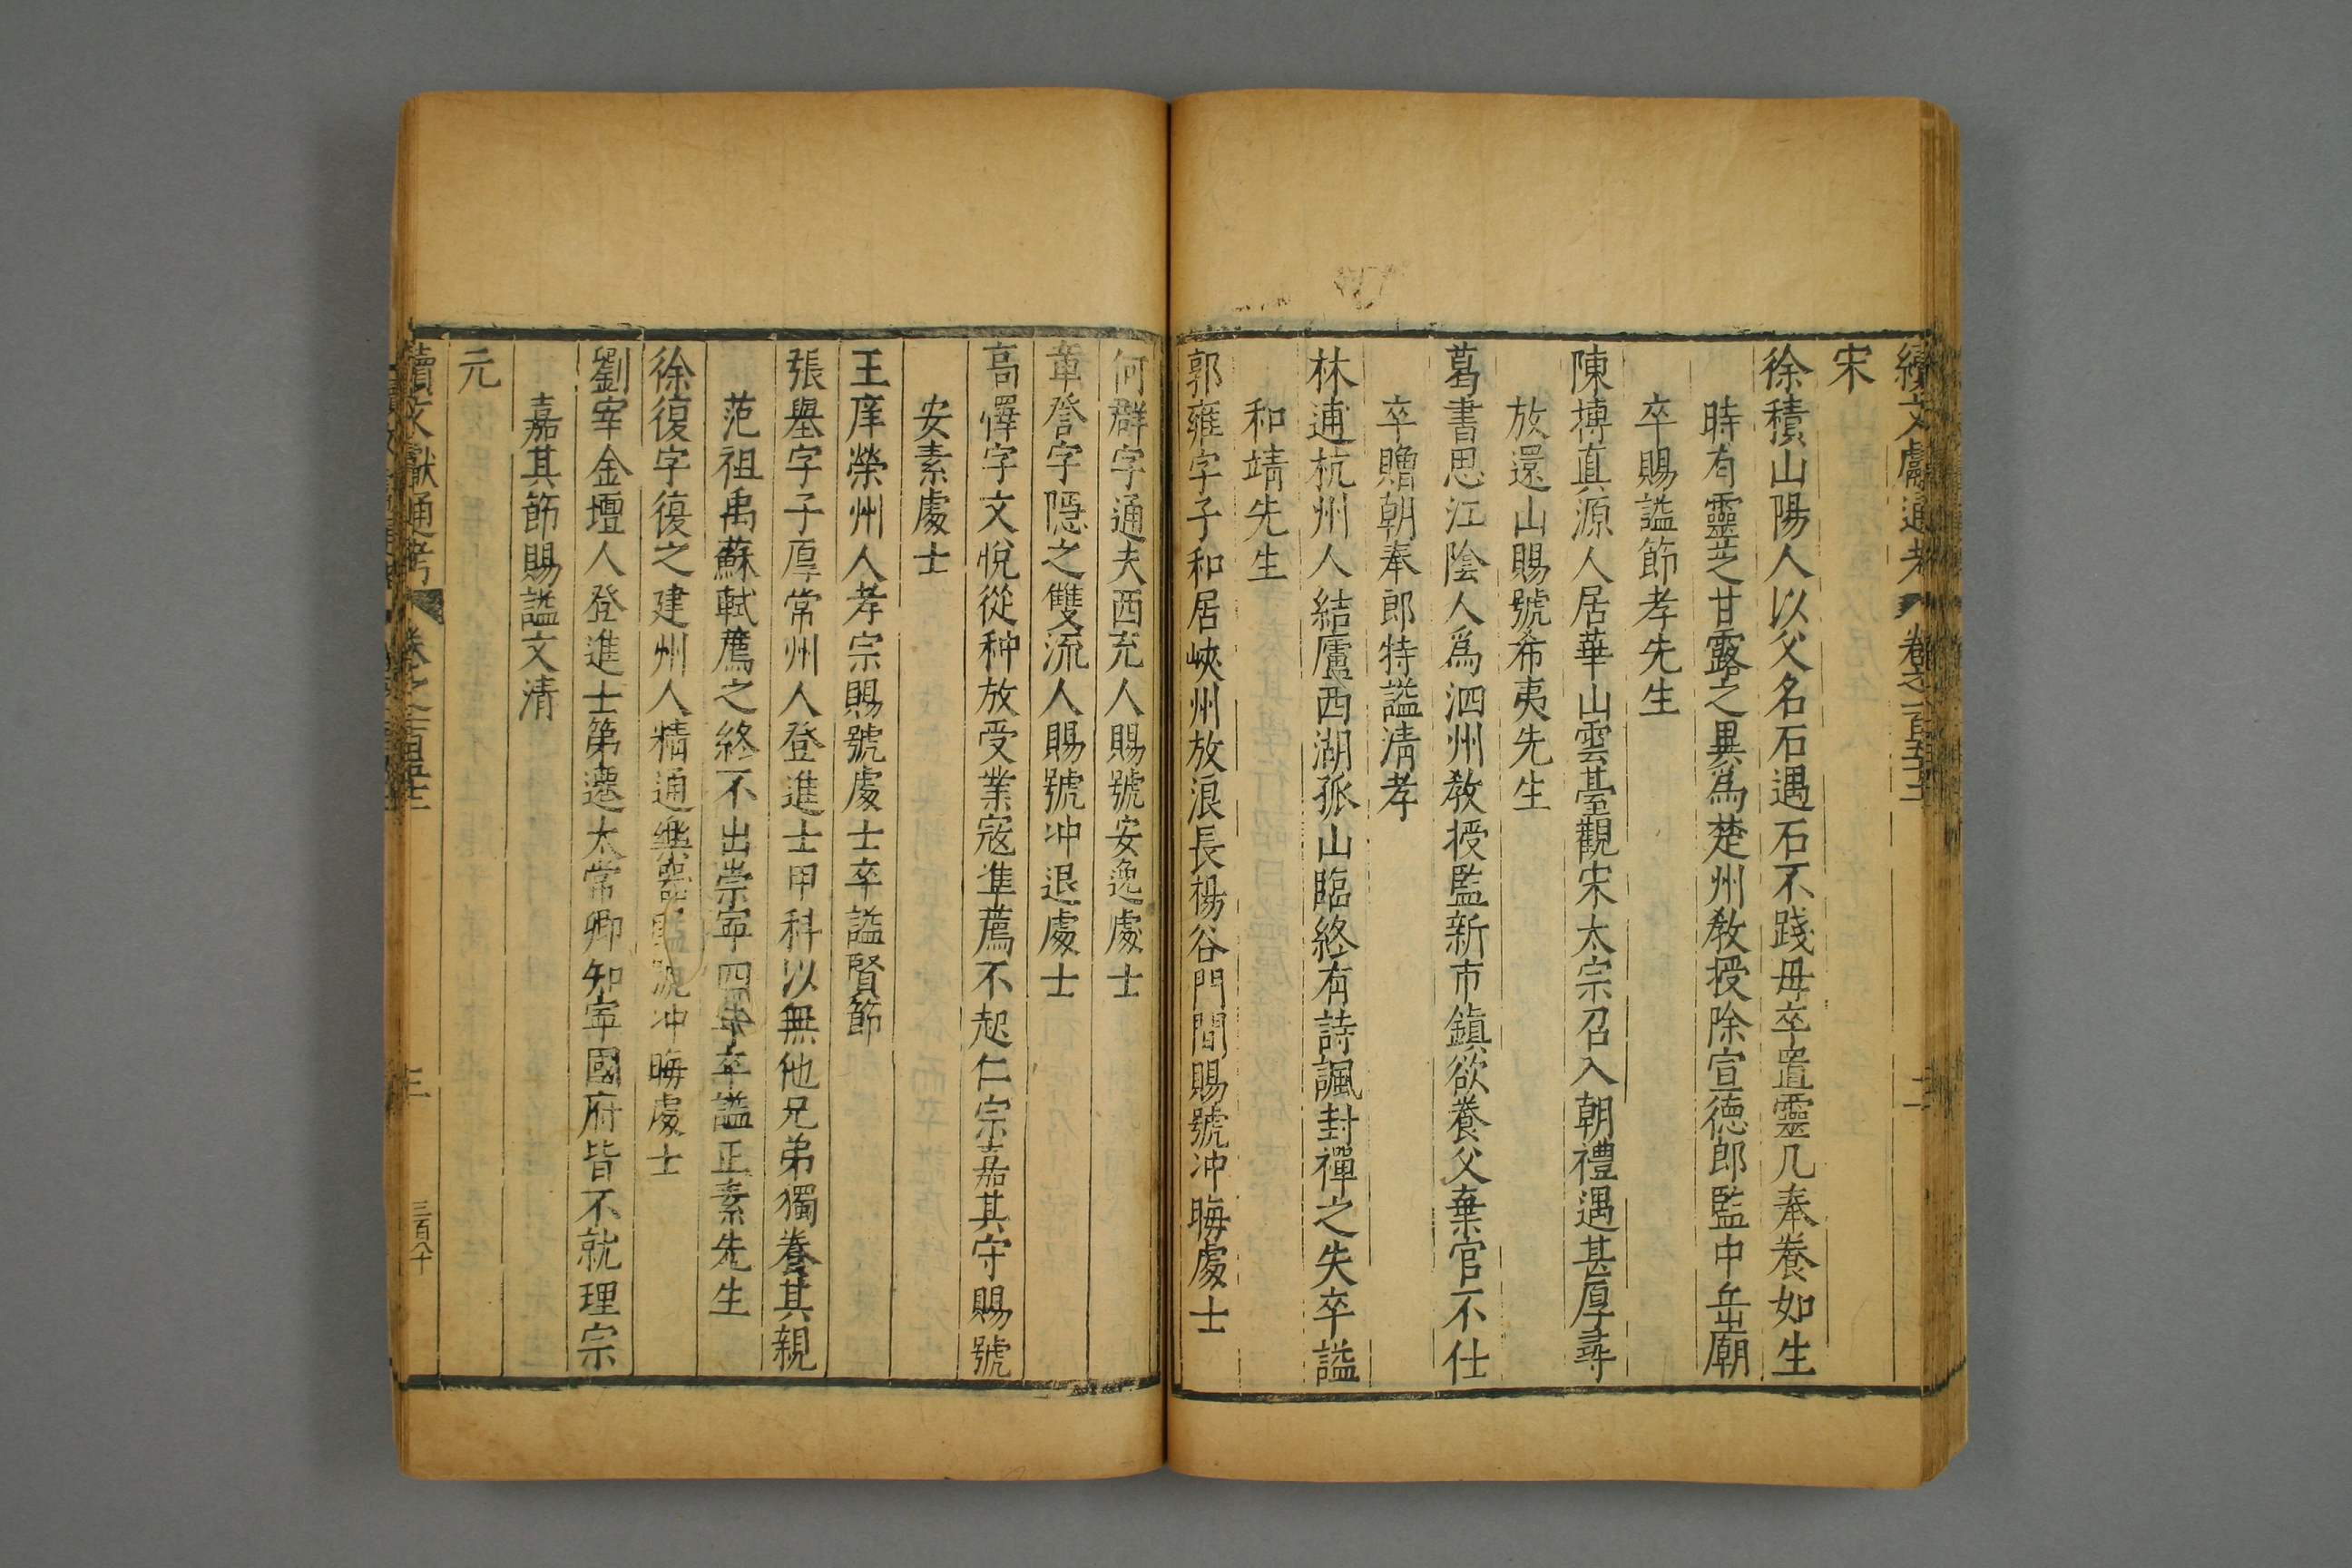 續文獻通考 卷之一百五十三 二
宋
徐積山陽人以父名石遇石不踐母卒置靈几奉養如生
時有靈芝甘露之異為楚州教授除宣德郎監中岳廟
卒賜謚節孝先生
陳摶真源人居華山雲臺觀宋太宗召入朝禮遇甚厚尋
放還山賜號希夷先生
葛書思江陰人為泗州教授監新市鎮欲養父棄官不仕
卒贈朝奉郎特謚清孝
林逋杭州人結廬西湖孤山臨終有詩諷封禪之失卒謚
和靖先生
郭雍字子和居峽州放浪長楊谷門間賜號冲晦處士
何群字通夫西充人賜號安逸處士
章詧字隱之雙流人賜號冲退處士
高懌字文悅從种放受業寇準薦不起仁宗嘉其守賜號
安素處士
王庠榮州人孝宗賜號處士卒謚賢節
張舉字子厚常州人登進士甲科以無他兄弟獨養其親
范祖禹蘇軾薦之終不出崇寧四年卒謚正素先生
徐復字復之建州人精通樂器賜號冲晦處士
劉宰金壇人登進士第遷太常卿知寧國府皆不就理宗
嘉其節賜謚文清
元
續文獻通考 卷之一百五十三 三 三百八十